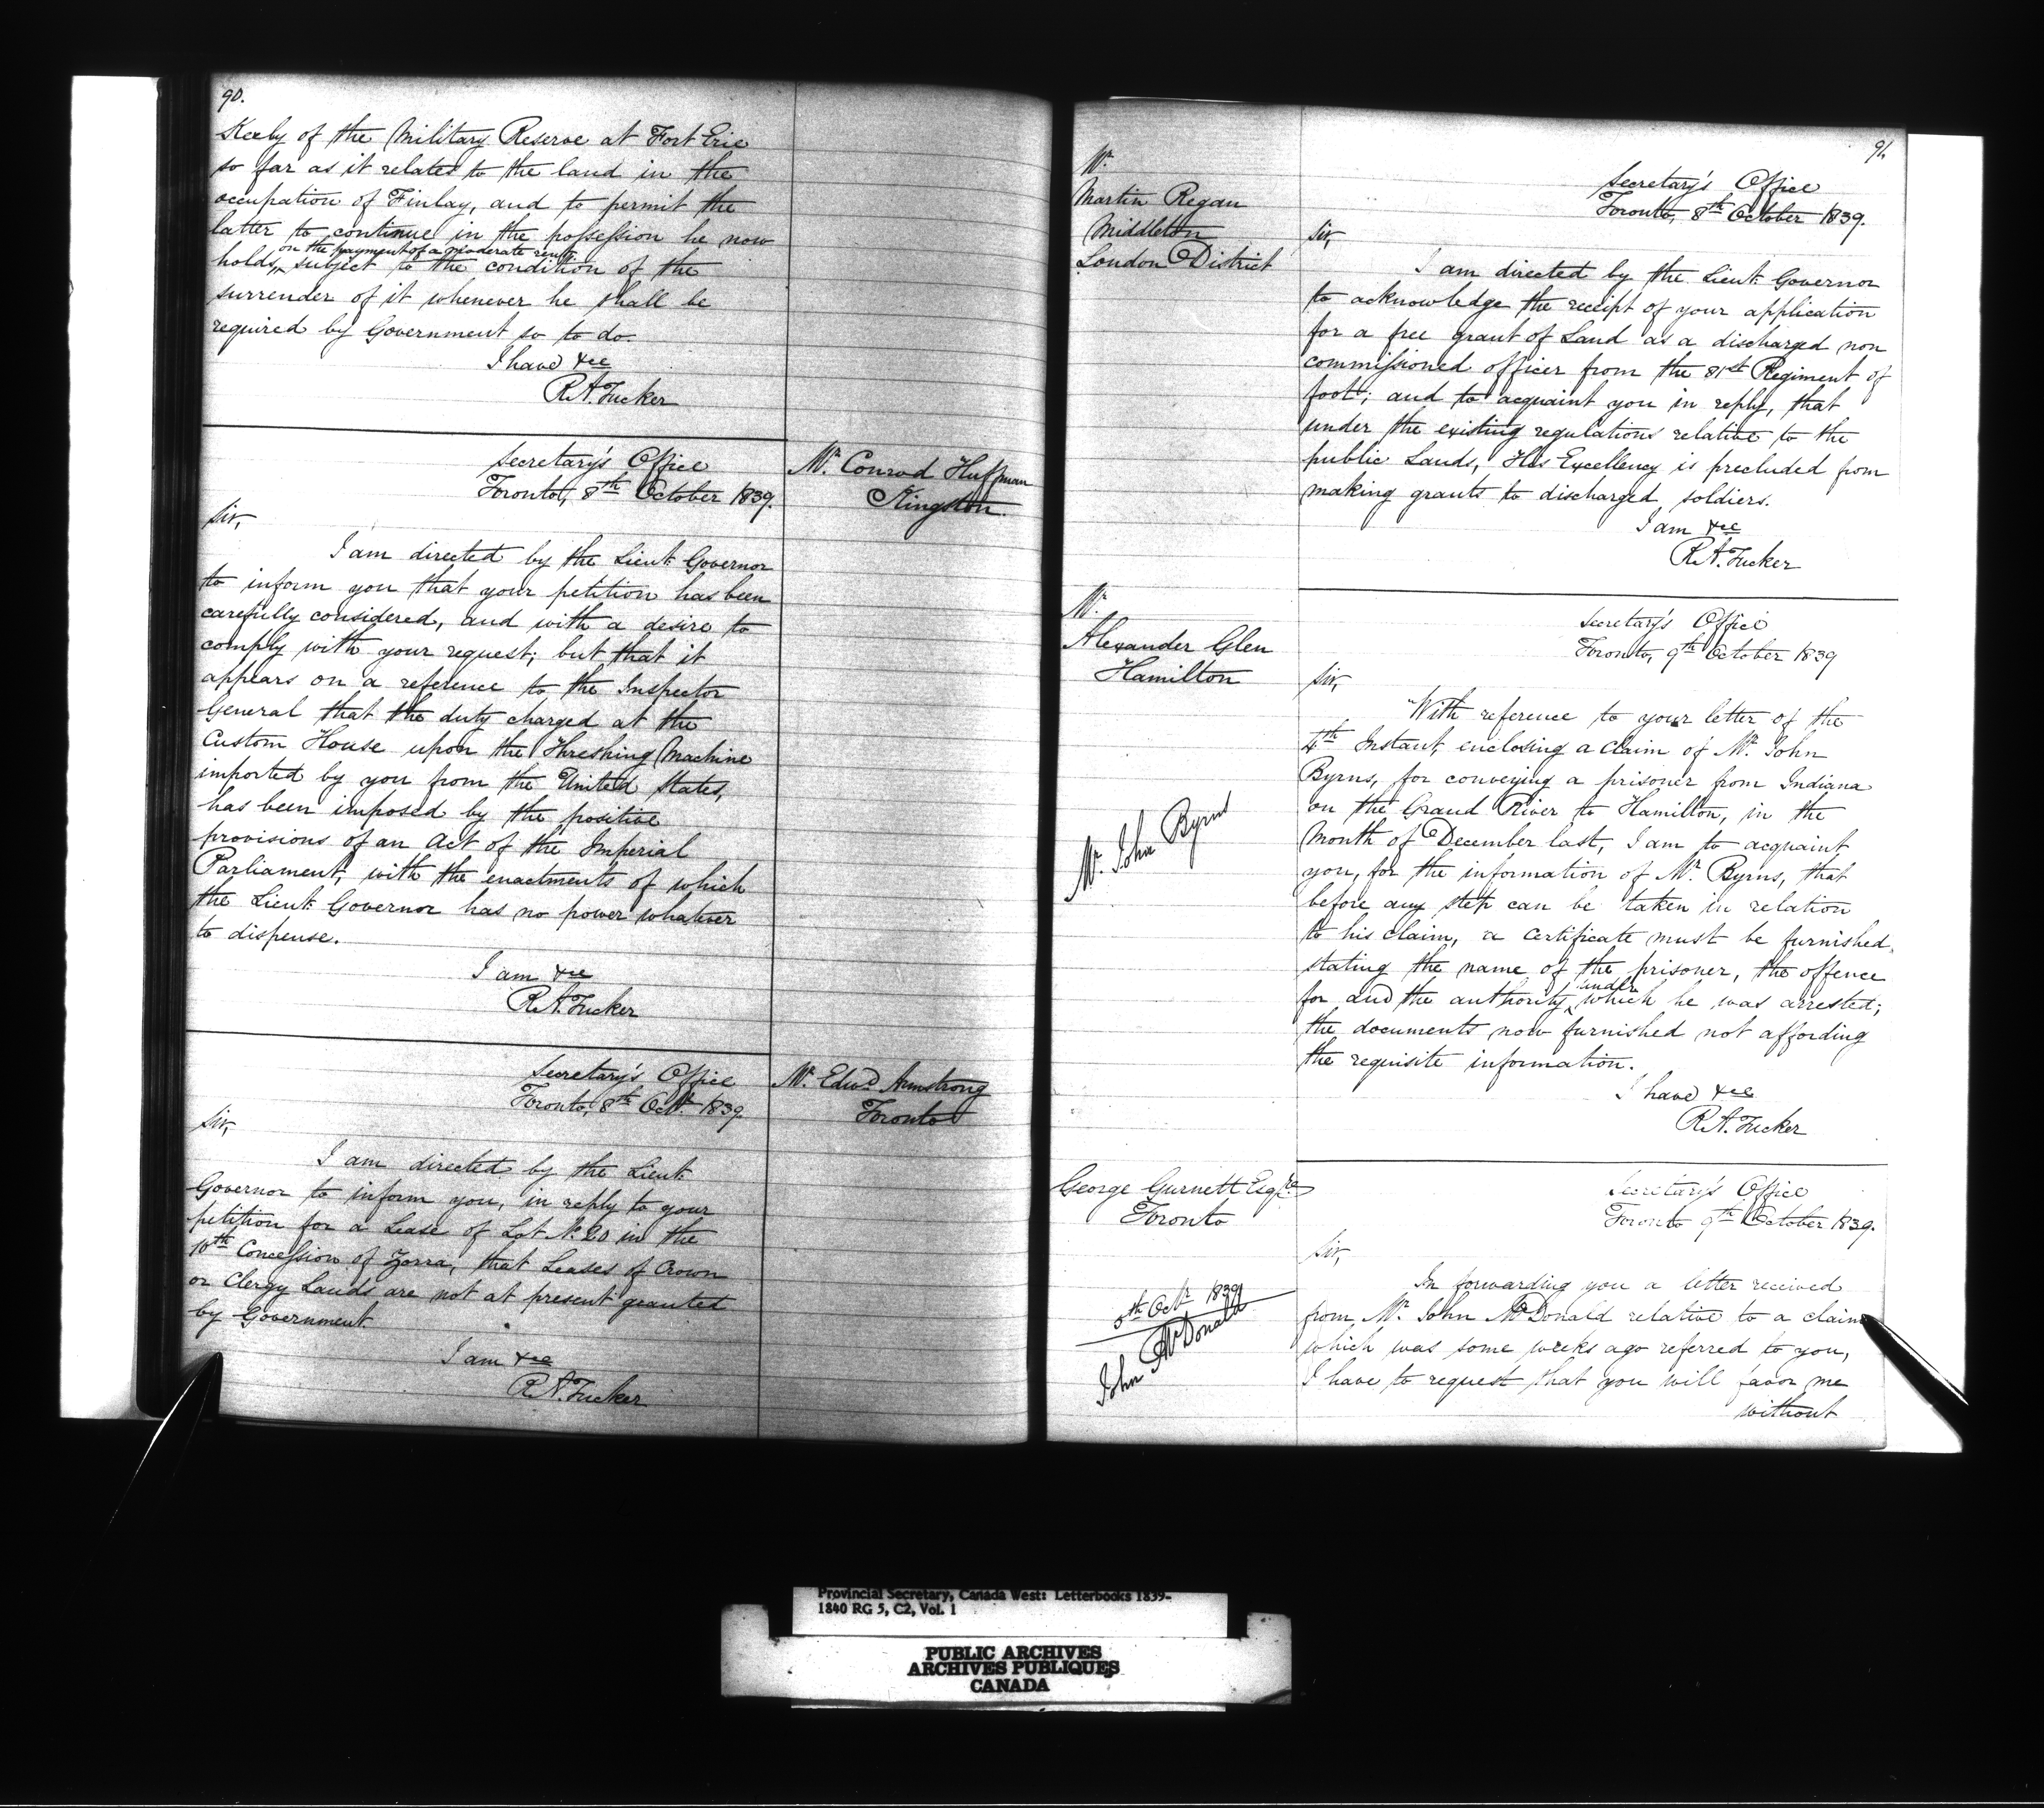 90.
Kerby of the Military Reserve at Fort Erie
so far as it relates to the land in the
occupation of Finlay, and to permit the
latter to continue in the possession he now
on the payment of a moderate rent,
holds, subject to the condition of the
surrender of it whenever he shall be
required by Government so to do.
I have &ce
R.A. Tucker
Secretary's Office
Toronto, 8th October 1839.
Mr. Conrad Huffman
Kingston.
Sir,
I am directed by the Lieut. Governor
to inform you that your petition has been
carefully considered, and with a desire to
comply with your request; but that it
appears on a reference to the Inspector
General that the duty charged at the
Custom House upon the Threshing Machine
imported by you from the United States,
has been imposed by the positive
provisions of an Act of the Imperial
Parliament, with the enactments of which
the Lieut. Governor has no power whatever
to dispense.
I am &ce
R.A. Tucker
Secretary's Office
Toronto, 8th Octr. 1839
Mr. Edwd. Armstrong
Toronto
Sir,
I am directed by the Lieut.
Governor to inform you, in reply to your
petition for a Lease of Lot No. 20 in the
10th Concession of Zorra, that Leases of Crown
or Clergy Lands are not at present granted
by Government.
I am &ce
R.A. Tucker
91.
Mr.
Martin Regan
Middleton
London District
Secretary's Office
Toronto, 8th October 1839.
Sir,
I am directed by the Lieut. Governor
to acknowledge the receipt of your application
for a free grant of Land as a discharged non
commissioned officer from the 81st Regiment of
foot; and to acquaint you in reply, that
under the existing regulations relative to the
public Lands, His Excellency is precluded from
making grants to discharged soldiers.
I am &ce
R.A. Tucker
Mr.
Alexander Glen
Hamilton
Secretary's Office
Toronto, 9th October 1839
Sir,
With reference to your letter of the
4th Instant, enclosing a claim of Mr. John
Byrns, for conveying a prisoner from Indiana
on the Grand River to Hamilton, in the
Month of December last, I am to acquaint
you, for the information of Mr. Byrns, that
before any step can be taken in relation
to his claim, a Certificate must be furnished,
stating the name of the prisoner, the offence
under
for and the authority which he was arrested;
the documents now furnished not affording
the requisite information.
I have &ce
R.A. Tucker
Mr. John Byrns
George Gurnett Esqre.
Toronto
Secretary's Office
Toronto 9th October 1839.
Sir,
In forwarding you a letter received
from Mr. John McDonald relative to a claim
which was some weeks ago referred to you,
I have to request that you will favor me
without
5th Octr. 1839
John McDonald
Provincial Secretary, Canada West: Letterbooks 1839-
1840 RG 5, C2, Vol. 1
PUBLIC ARCHIVES
ARCHIVES PUBLIQUES
CANADA